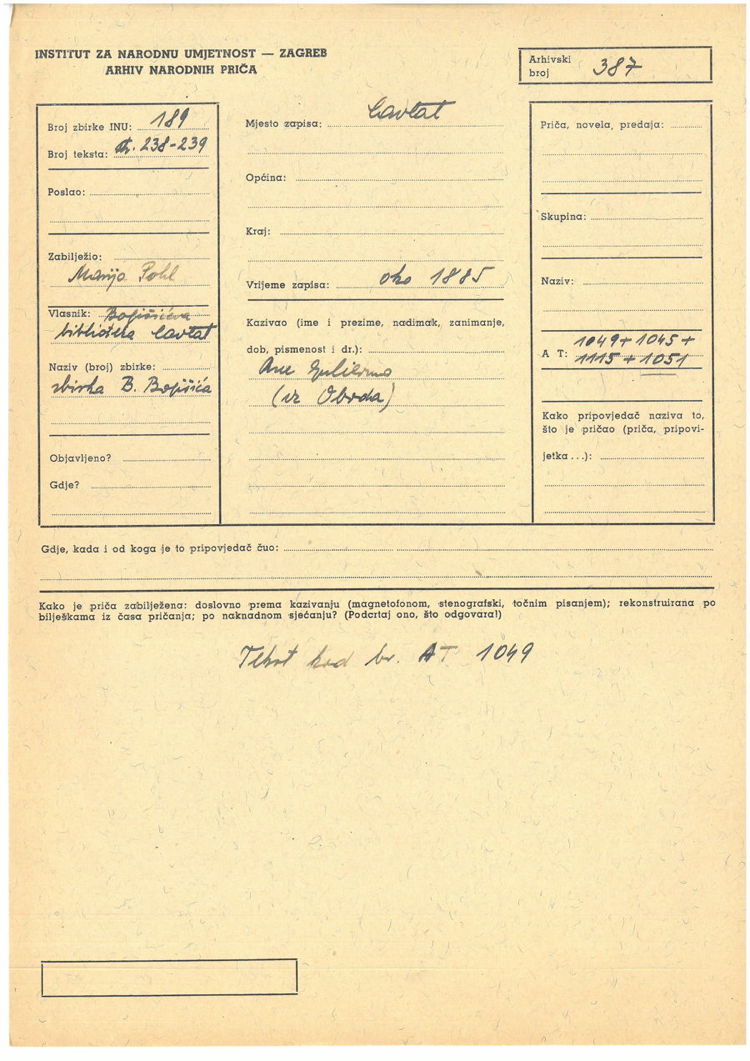 INSTITUT ZA NARODNU UMJETNOST — ZAGREB
ARHIV NARODNIH PRIČA
Arhivski
broj 387
Broj zbirke INU: 189
Broj teksta: str. 238-239
Poslao:
Zabilježio:
Marija Pohl
Vlasnik: Bogišićeva
biblioteka Cavtat
Naziv (broj) zbirke:
zbirka B. Bogišića
Objavljeno?
Gdje?
Mjesto zapisa: Cavtat
Općina:
Kraj:
Vrijeme zapisa: oko 1885
Kazivao (ime i prezime, nadimak, zanimanje,
dob, pismenost i dr.):
Ane
(iz Obroda)
Priča, novela, predaja:
Skupina:
Naziv:
1049 + 1045 +
A T: 1115 + 1051
Kako pripovjedač naziva to,
što je pričao (priča, pripovi-
jetka...):
Gdje, kada i od koga je to pripovjedač čuo:
Kako je priča zabilježena: doslovno prema kazivanju (magnetofonom, stenografski, točnim pisanjem); rekonstruirana po
bilješkama iz časa pričanja; po naknadnom sjećanju? (Podcrtaj ono, što odgovara!)
Tekst kod br. AT 1049